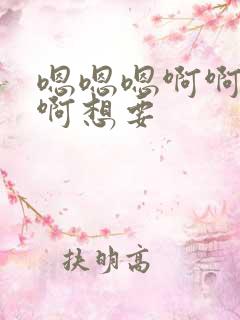 嗯嗯嗯啊啊
啊想要
扶明高